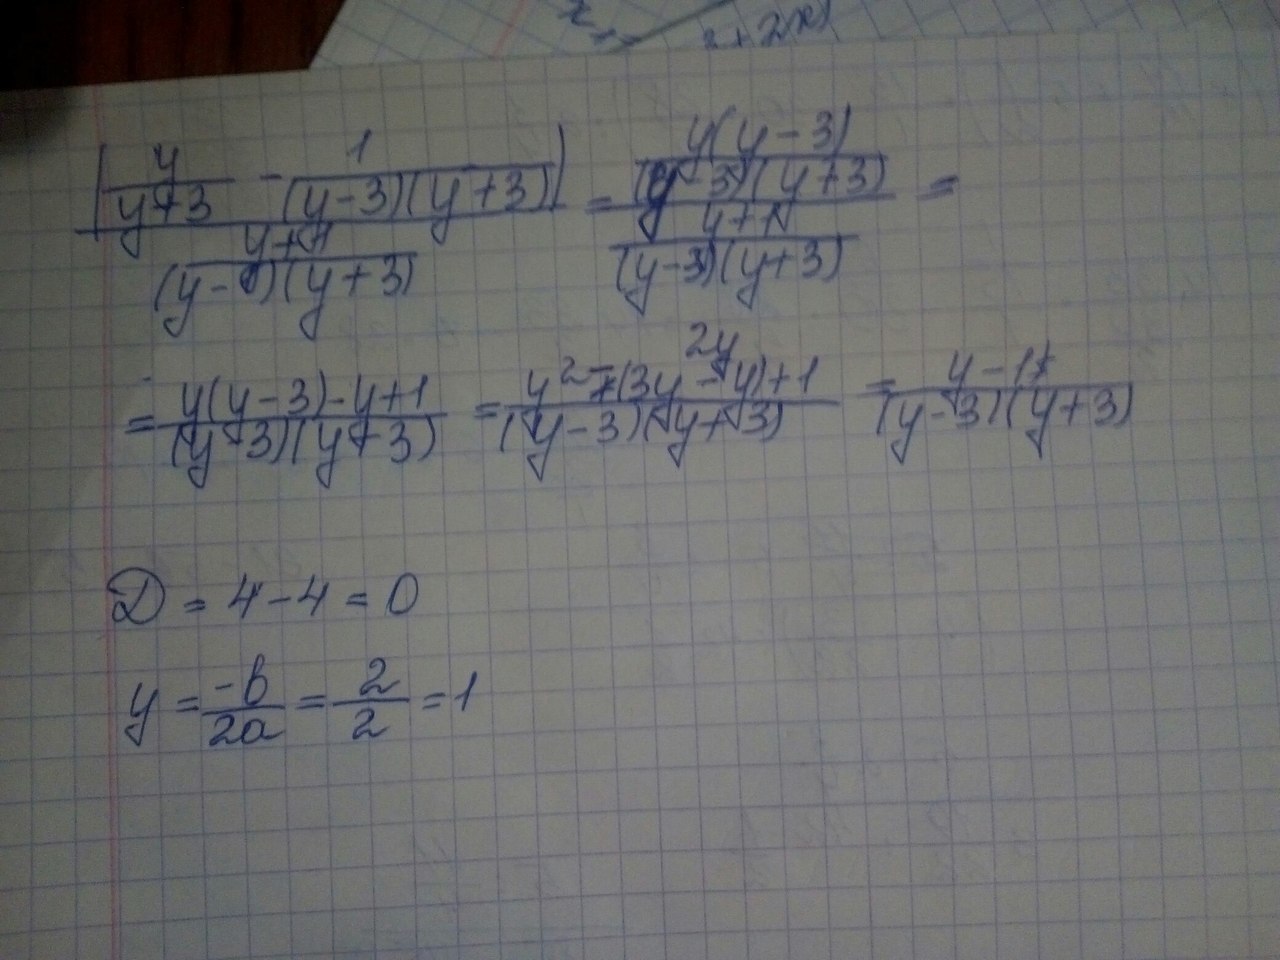 2x)
(y/(y+3) - 1/((y-3)(y+3))) / ((y+1)/((y-3)(y+3))) = (y(y-3)/((y-3)(y+3))) / ((y+1)/((y-3)(y+3))) =
= (y(y-3)-y+1)/((y-3)(y+3)) = (y²-(3y-y)+1)/((y-3)(y+3)) 2y = (y-1)/((y-3)(y+3))
D = 4-4 = 0
y = -b/2a = 2/2 = 1